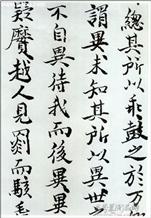 總其所以乖鼓之於
謂異未知其所以異世之
不自異待我而後異異果
疑黂越人見罽而駭毳